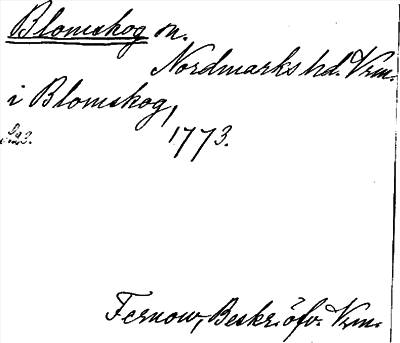 Blomskog sn.
Nordmarks hd. Vrm.
i Blomskog,
1773.
Fernow, Beskr. öfv. Vrm.